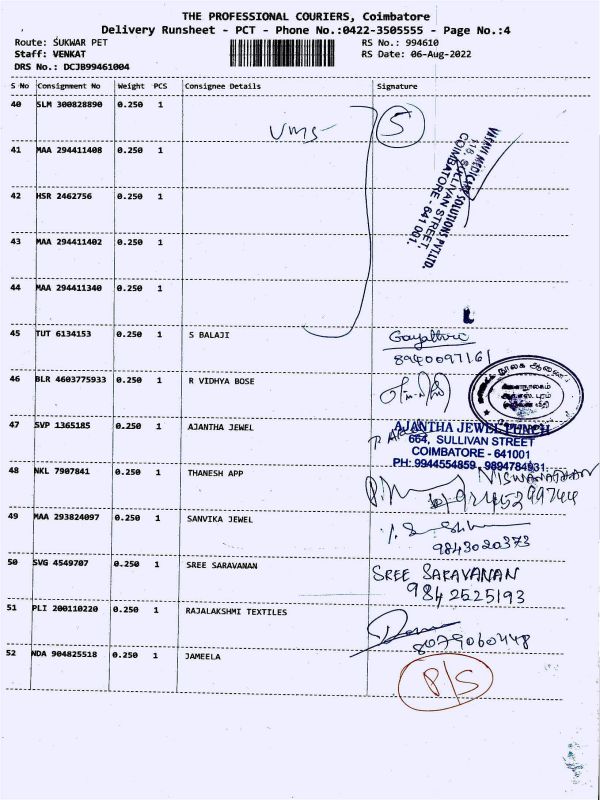 THE PROFESSIONAL COURIERS, Coimbatore
Delivery Runsheet - PCT - Phone No.:0422-3505555 - Page No.:4
Route: SUKWAR PET RS No.: 994610
Staff: VENKAT RS Date: 06-Aug-2022
DRS No.: DCJB99461004
S No Consignment No Weight PCS Consignee Details Signature
40 SLM 300828890 0.250 1
VMS 5
VASAVI MEDICARE SOLUTIONS PVT.LTD.
116, SULLIVAN STREET,
COIMBATORE - 641 001.
41 MAA 294411408 0.250 1
42 HSR 2462756 0.250 1
43 MAA 294411402 0.250 1
44 MAA 294411340 0.250 1
45 TUT 6134153 0.250 1 S BALAJI Gayathri
8940097161
46 BLR 4603775933 0.250 1 R VIDHYA BOSE
47 SVP 1365185 0.250 1 AJANTHA JEWEL
AJANTHA JEWEL PUNCH
664, SULLIVAN STREET
COIMBATORE - 641001
PH: 9944554859, 9894784931
48 NKL 7907841 0.250 1 THANESH APP VISWANATHAN
49 MAA 293824097 0.250 1 SANVIKA JEWEL
9843020373
50 SVG 4549707 0.250 1 SREE SARAVANAN SREE SARAVANAN
9842525193
51 PLI 200110220 0.250 1 RAJALAKSHMI TEXTILES
8079060448
52 NDA 904825518 0.250 1 JAMEELA
P/S